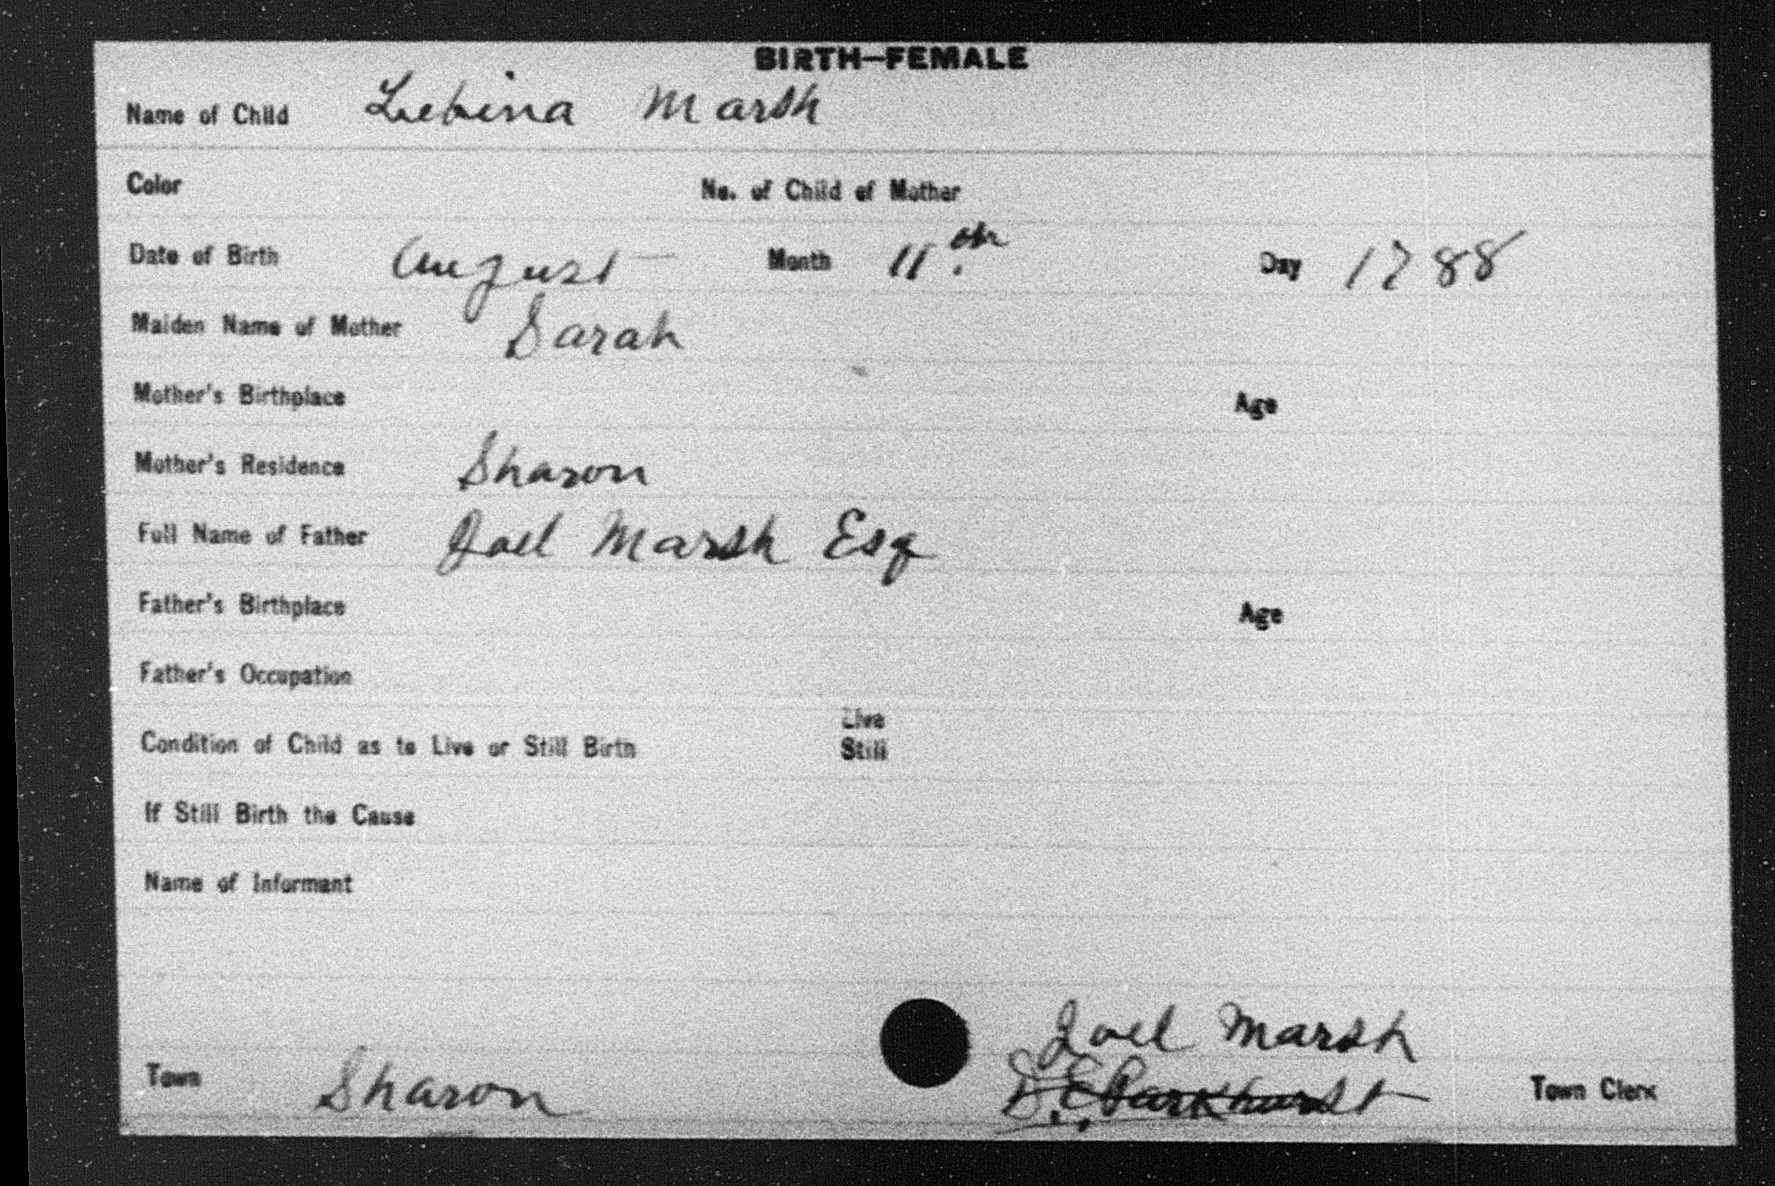 BIRTH—FEMALE
Name of Child Lebina Marsh
Color No. of Child of Mother
Date of Birth August Month 11th Day 1788
Maiden Name of Mother Sarah
Mother's Birthplace Age
Mother's Residence Sharon
Full Name of Father Joel Marsh Esq
Father's Birthplace Age
Father's Occupation
Live
Condition of Child as to Live or Still Birth Still
If Still Birth the Cause
Name of Informant
Joel Marsh
Town Sharon D. E. Parkhurst Town Clerk